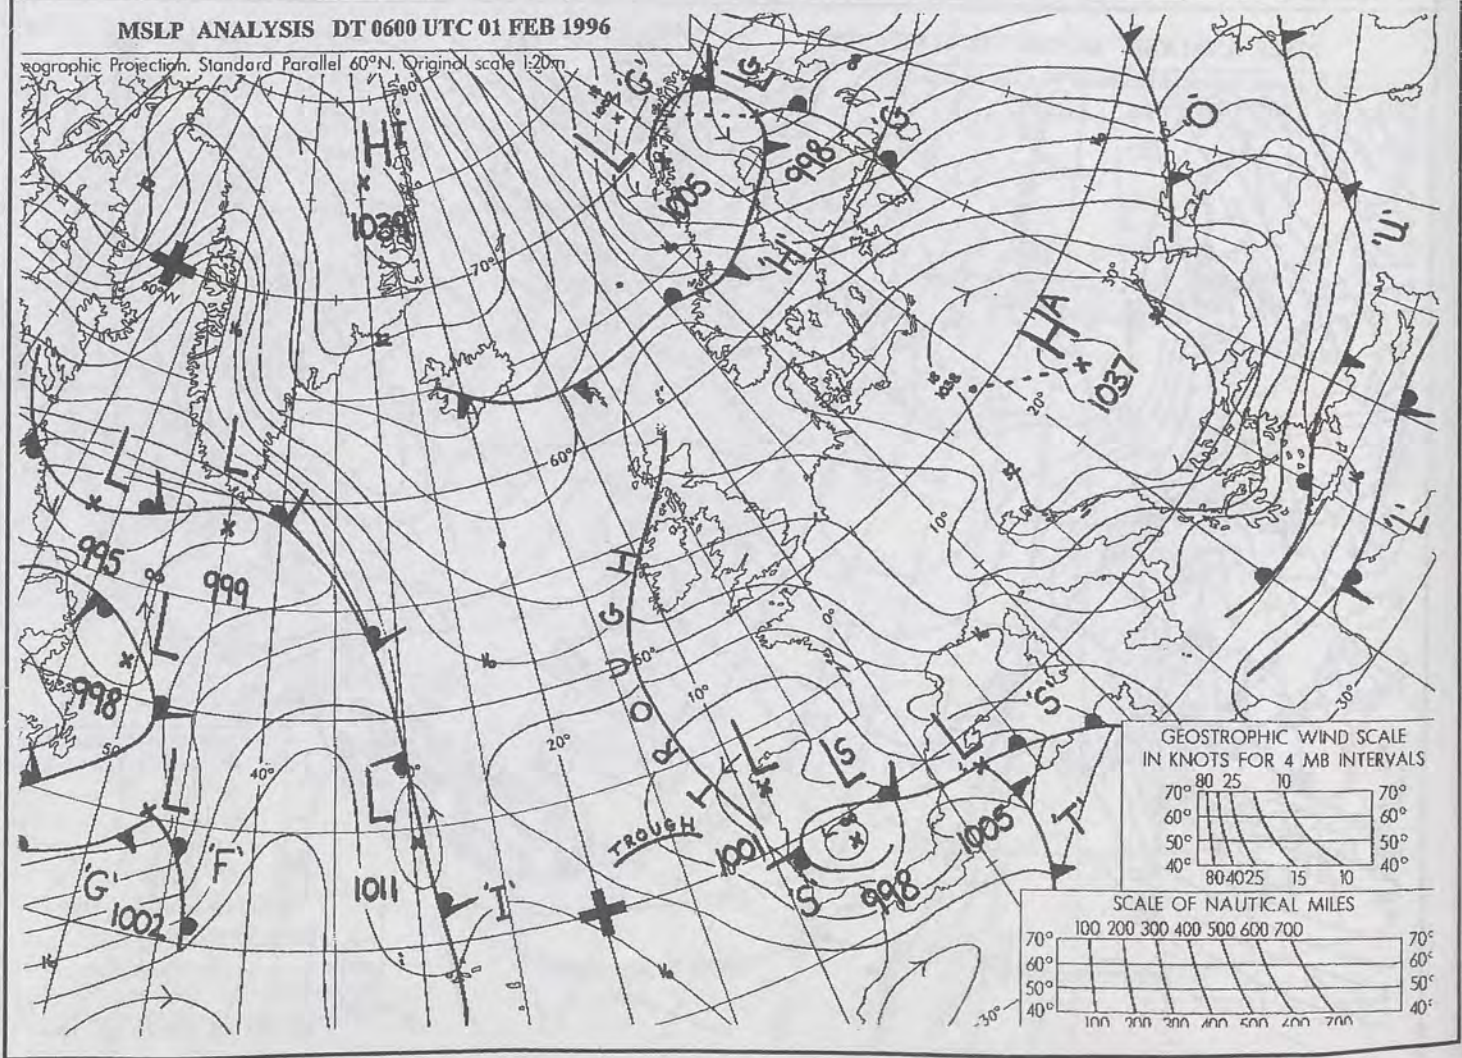 MSLP ANALYSIS DT 0600 UTC 01 FEB 1996
eographic Projection. Standard Parallel 60°N. Original scale 1:20m
80°
H
1039
'G'
L
L G
1005
998
'G'
'H'
'O'
'U'
70°
60°N
H A
1037
1038
30°
20°
10°
0°
60°
L
L
995
999
L
998
'L'
50°
50
10°
20°
40°
TROUGH
TROUGH
L
L
'G'
1002
'F'
1011
'I'
L
L S
L
'S'
1001
'S'
998
1005
'T'
30°
30°
GEOSTROPHIC WIND SCALE
IN KNOTS FOR 4 MB INTERVALS
80 25 10
70° 70°
60° 60°
50° 50°
40° 40°
80 40 25 15 10
SCALE OF NAUTICAL MILES
100 200 300 400 500 600 700
70° 70°
60° 60°
50° 50°
40° 40°
100 200 300 400 500 600 700